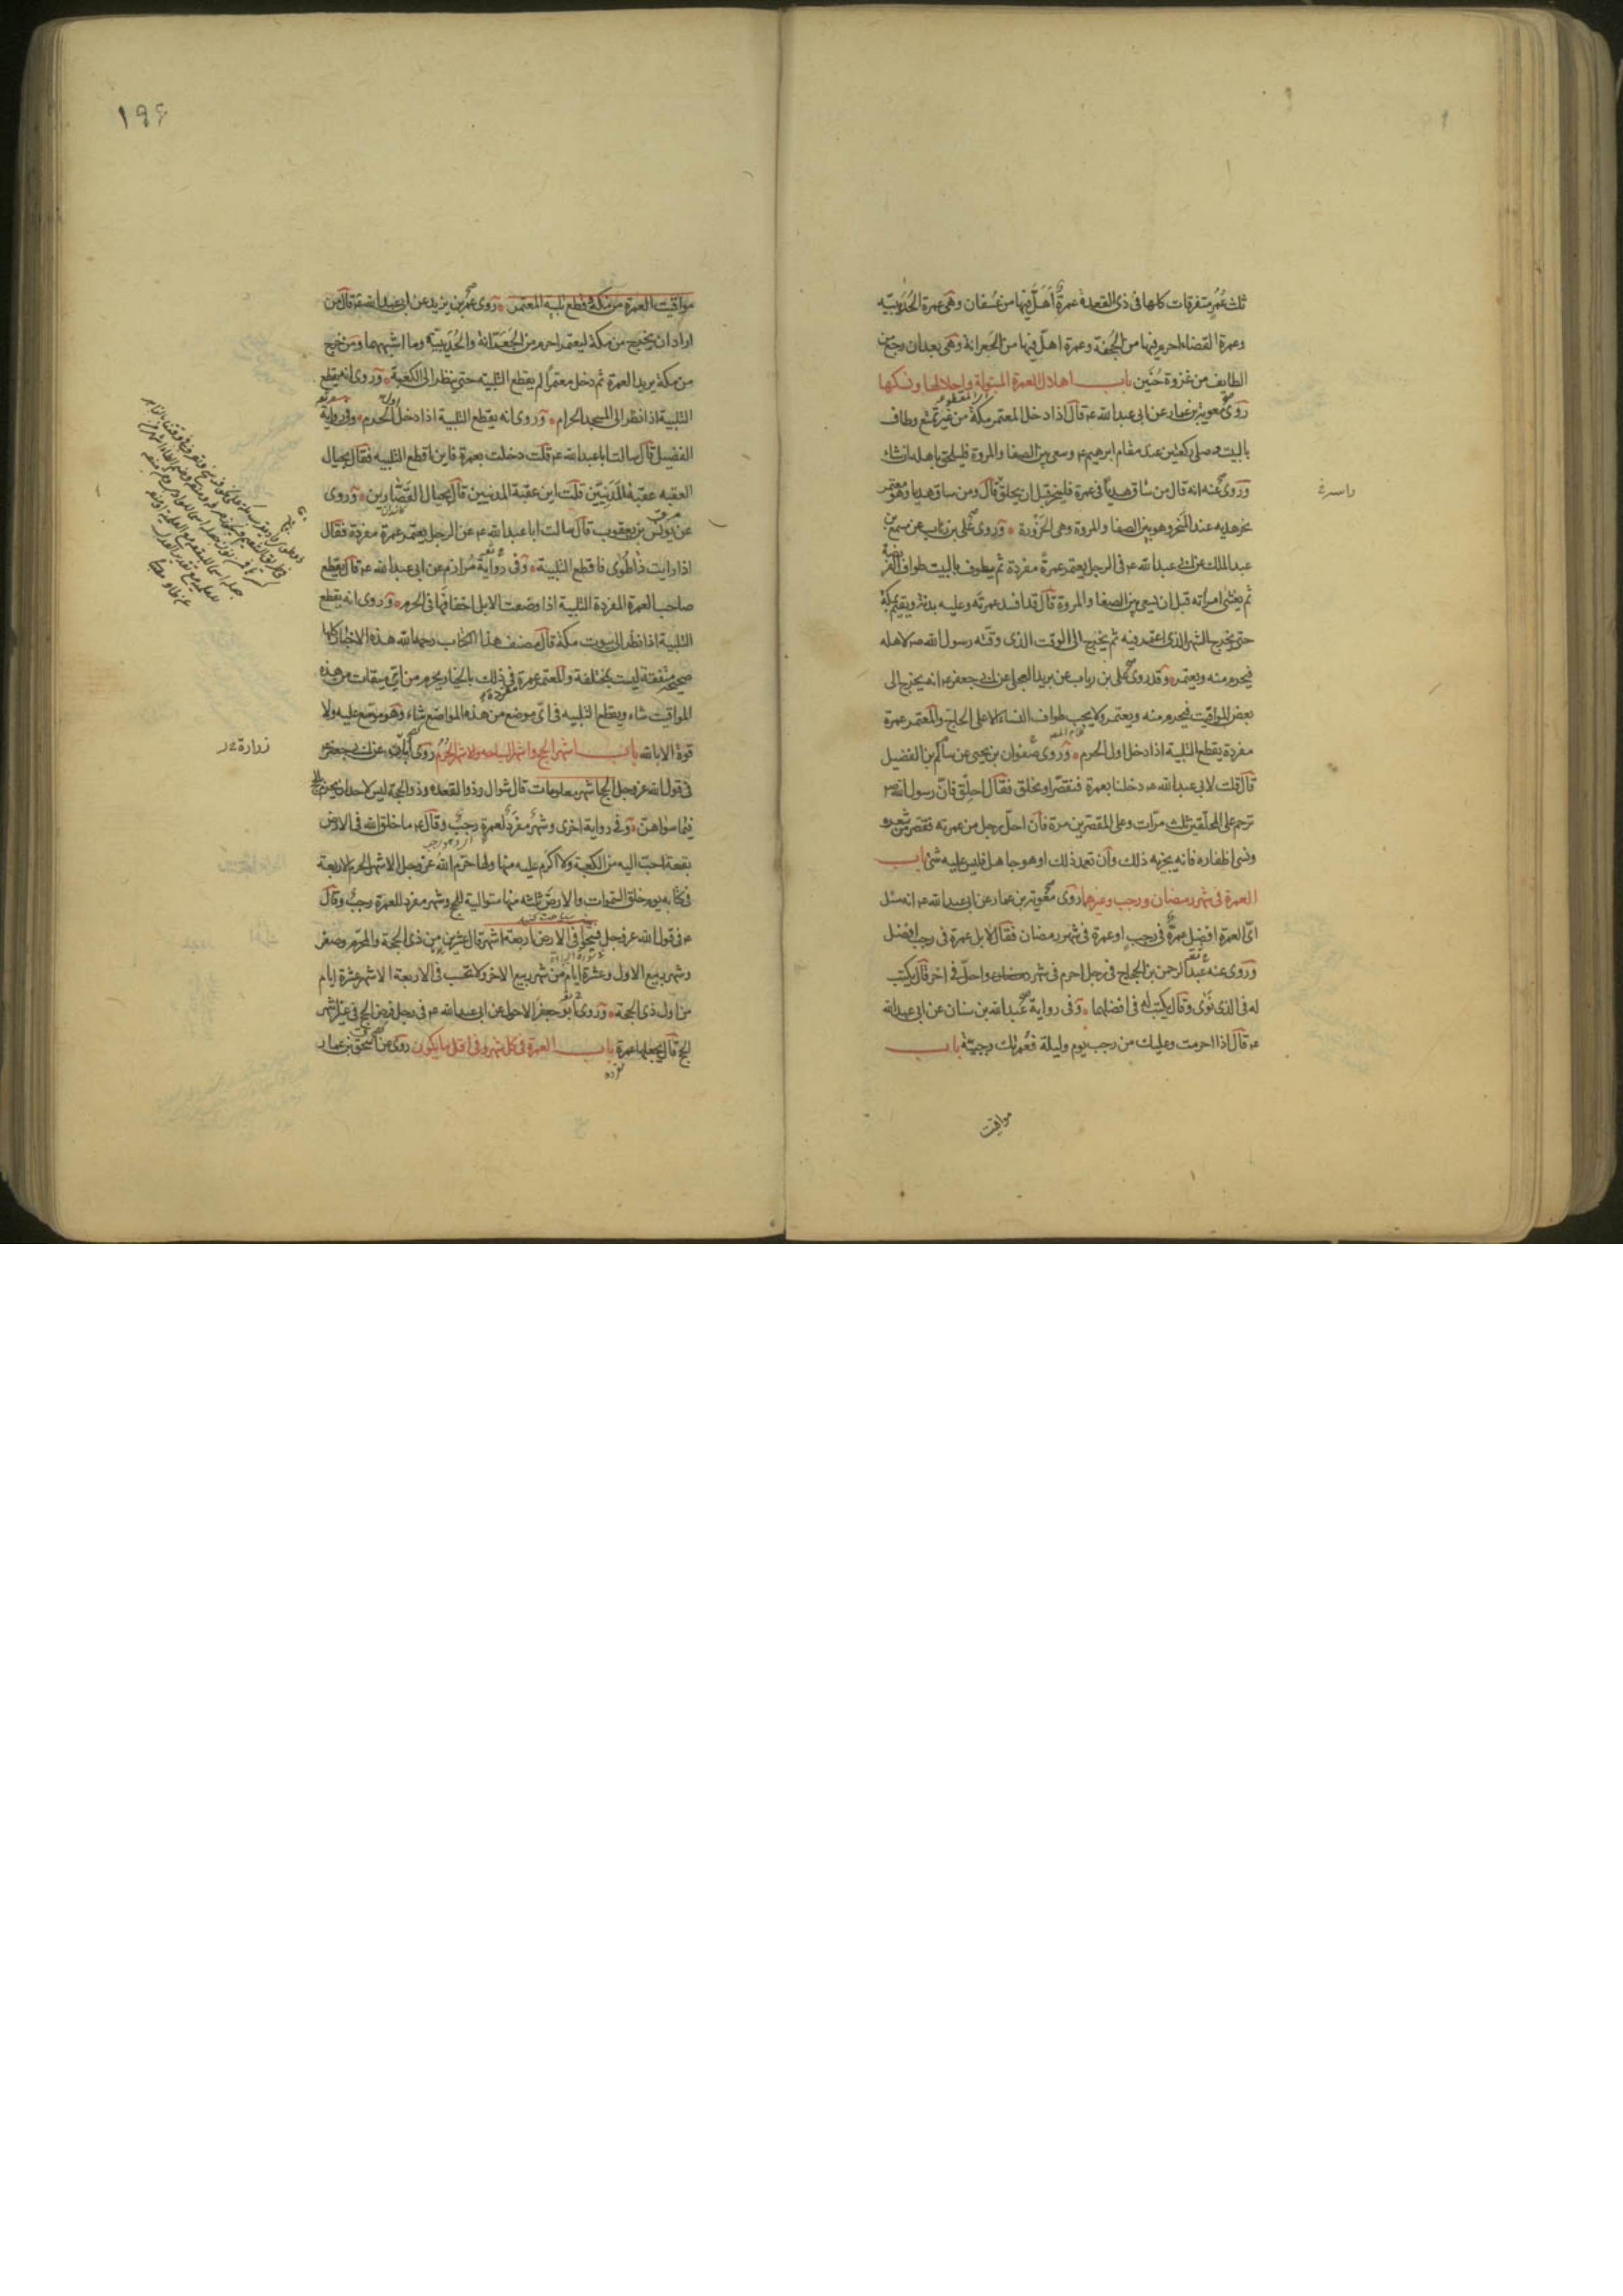 ثلث عُمَرٍ متفرقات كلها فى ذى القعدة عمرةٌ أَهَلَّ فيها من عُسفان وهى عمرة الحُدَيبيّه
وعمرة القضاء احرم فيها من الجُحفة وعمرة اهلّ فيها من الجَعرانة وهى بعد ان رجع من
الطايف من غزوة حُنَين باب اهلال العمرة المبتولة واحلالها ونسكها
روى معوية بن عمار عن ابى عبدالله ع قال اذا دخل المعتمر مكة من غير تمتع وطاف
بالبيت وصلى ركعتين عند مقام ابرهيم ع وسعى بين الصفا والمروة فليلحق باهله ان شاء
وروى عنه انه قال من ساق هديا فى عمرة فلينحر قبل ان يحلق قال ومن ساق هديا وهو معتمر
نحر هديه عند المنحر وهو بين الصفا والمروة وهى الحَزْورة وروى على بن رئاب عن مسمع بن
عبد الملك عن ابى عبدالله ع فى الرجل يعتمر عمرة مفردة ثم يطوف بالبيت طواف الفريضة
ثم يغشى امراته قبل ان يسعى بين الصفا والمروة قال قد افسد عمرته وعليه بدنة ويقيم بمكة
حتى يخرج الشهر الذى اعتمر فيه ثم يخرج الى الوقت الذى وقّته رسول الله ص لاهله
فيحرم منه ويعتمر وقد روى على بن رياب عن بريد العجلى عن ابى جعفر ع انه يخرج الى
بعض المواقيت فيحرم منه ويعتمر ولا يجب طواف النساء الا على الحاج والمعتمر عمرة
مفردة يقطع التلبية اذا دخل اول الحرم وروى صفوان بن يحيى عن سالم بن الفضيل
قال قلت لابى عبدالله ع دخلنا بعمرة فنقصّر او نحلق فقال احلِق فانّ رسول الله ص
ترحم على المحلّقين ثلث مرّات وعلى المقصرين مرة فان احلّ رجل من عمرته فقصر من شعره
ونسى اظفاره فانه يجزيه ذلك وان تعمد ذلك او هو جاهل فليس عليه شئ باب
العمرة فى شهر رمضان ورجب وغيرهما روى معوية بن عمار عن ابى عبدالله ع انه سئل
اىّ العمرة افضل عمرة فى رجب او عمرة فى شهر رمضان فقال لا بل عمرة فى رجب افضل
وروى عنه عبد الرحمن بن الحجاج فى رجل احرم فى شهر واحلّ فى اخر قال يكتب
له فى الذى نَوى وقال يكتب له فى افضلهما وفى رواية عبدالله بن سنان عن ابى عبدالله
ع قال اذا احرمت وعليك من رجب يوم وليلة فعُمرتك رجبيّة باب
مواقيت
١٩۶
مواقيت العمرة من مكة وقطع تلبية المعتمر وروى عمر بن يزيد عن ابى عبدالله ع قال من
اراد ان يخرج من مكة ليعتمر احرم من الجُعرانة والحُدَيبيّة وما اشبههما ومن خرج
من مكة يريد العمرة ثم دخل معتمرًا لم يقطع التلبيه حتى ينظر الى الكعبة وروى انه يقطع
التلبية اذا نظر الى المسجد الحرام وروى انه يقطع التلبية اذا دخل الحرم وفى رواية
الفضيل قال سالت ابا عبدالله ع قلت دخلت بعمرة فاين اقطع التلبيه فقال بحيال
العقبه عقبة المَدَنِيّين قلت اين عقبة المدنيين قال بحيال القصّارين وروى
عن يونس بن يعقوب قال سالت ابا عبدالله ع عن الرجل يعتمر عمرة مفردة فقال
اذا رايت ذا طُوى فاقطع التلبية وفى رواية مُرازم عن ابى عبدالله ع قال يقطع
صاحب العمرة المفردة التلبية اذا وضعت الابل اخفافها فى الحرم وروى انه يقطع
التلبية اذا نظر الى بيوت مكة قال مصنف هذا الكتاب رحمه الله هذه الاخبار كلها
صحيحة متفقة ليست بمختلفة والمعتمر عمرة فى ذلك بالخيار يحرم من اىّ ميقات من هذه
المواقيت شاء ويقطع التلبيه فى اىّ موضع من هذه المواضع شاء وهو موسّع عليه ولا
قوة الا بالله باب اشهر الحج واشهر السياحه والاشهر الحُرُم روى ابان عن ابى جعفر ع
زرارة عن
فى قول الله عز وجل الحج اشهر معلومات قال شوال وذو القعده وذو الحجة ليس لاحد ان يحرم بالحج
فيما سواهنّ وفى رواية اخرى وشهر مفرد لعمرة رجب وقال ع ما خلق الله فى الارض
بقعة احبّ اليه من الكعبة ولا اكرم عليه منها ولها حرّم الله عز وجل الاشهر الحرم الاربعة
فى كتابه يوم خلق السموات والارض ثلثة منها متوالية للحج وشهر مفرد للعمرة رجب وقال
ع فى قول الله عز وجل فسيحوا فى الارض اربعة اشهر قال عشرين من ذى الحجة والمحرّم وصفر
وشهر ربيع الاول وعشرة ايام من شهر ربيع الاخر ولا تحسب فى الاربعة الاشهر عشرة ايام
من اول ذى الحجة وروى ابو جعفر الاحول عن ابى عبدالله ع فى رجل فرض الحج فى غير اشهر
الحج قال يجعلها عمرة باب العمرة فى كل شهر وفى اقل ما يكون روى عن اسحق بن عمار